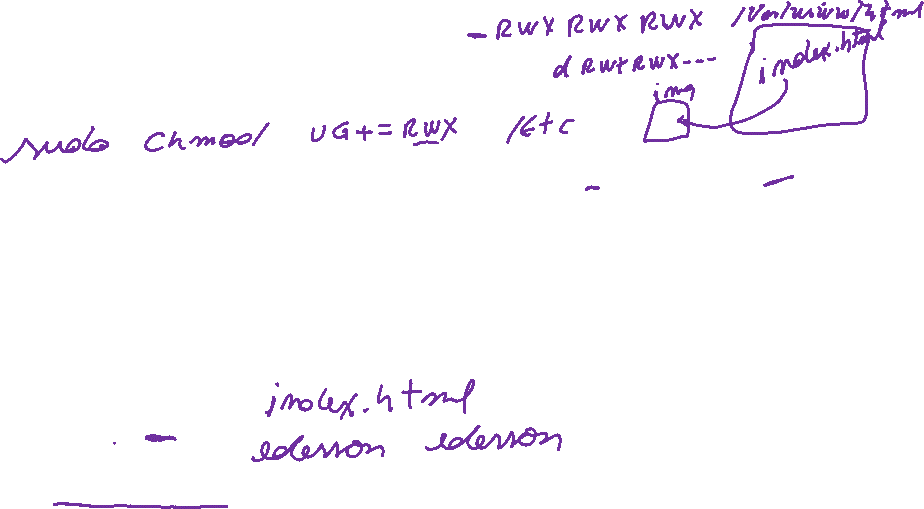 - RWX RWX RWX /Var/www/html
index.html
d RWX RWX ---
img
sudo chmod UG+=RWX /Etc
index.html
ederson ederson